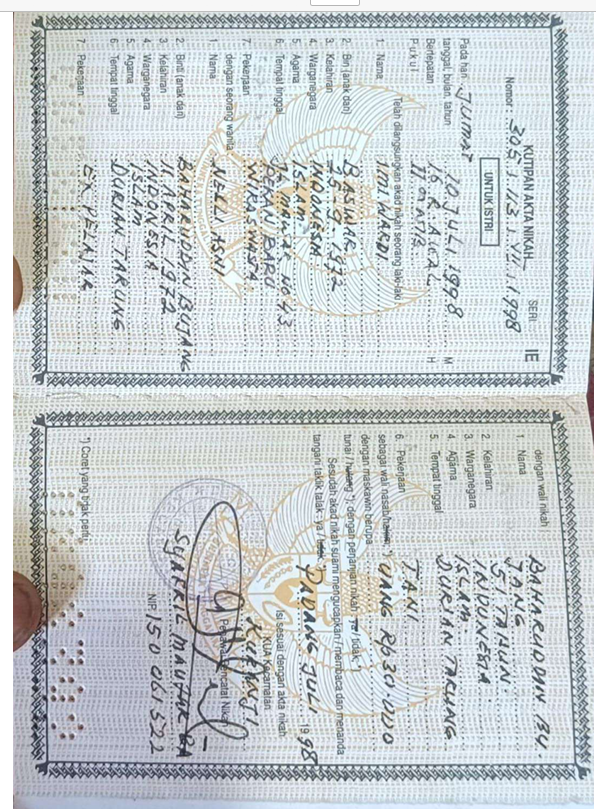 KUTIPAN AKTA NIKAH
SERI IE
Nomor : 305 / 113 / VII / 1998
UNTUK ISTRI
Pada hari JUMAT
tanggal, bulan, tahun 10 JULI 1998 M
Bertepatan 16 R. AWAL H
Pukul
Telah dilangsungkan akad nikah seorang laki-laki
1. Nama WARDI
2. Bin (anak dari) BASWAR
3. Kelahiran 1972
4. Warganegara INDONESIA
5. Agama ISLAM
6. Tempat tinggal No 43
PEKAN BARU
7. Pekerjaan WIRASWASTA
dengan seorang wanita
1. Nama NELI ASNI
2. Binti (anak dari) BAHARUDDIN BUJANG
3. Kelahiran 11 APRIL 1972
4. Warganegara INDONESIA
5. Agama ISLAM
6. Tempat tinggal DURIAN TARUNG
7. Pekerjaan EX PELAJAR
dengan wali nikah
1. Nama BAHARUDDIN BU.
JANG
2. Kelahiran 51 TAHUN
3. Warganegara INDONESIA
4. Agama ISLAM
5. Tempat tinggal DURIAN TARUNG
6. Pekerjaan TANI
sebagai wali nasab/hakim *)
dengan maskawin berupa UANG Rp30.000
tunai / hutang *), dengan perjanjian nikah ya / tidak *)
Sesudah akad nikah suami mengucapkan / membaca dan menanda
tangani taklik talak : ya / tidak
PADANG JULI 1998
Isi sesuai dengan akta nikah
KUA Kecamatan
KURANJI
Pegawai Pencatat Nikah
SYAFRIL
NIP. 150 061 522
*) Coret yang tidak perlu